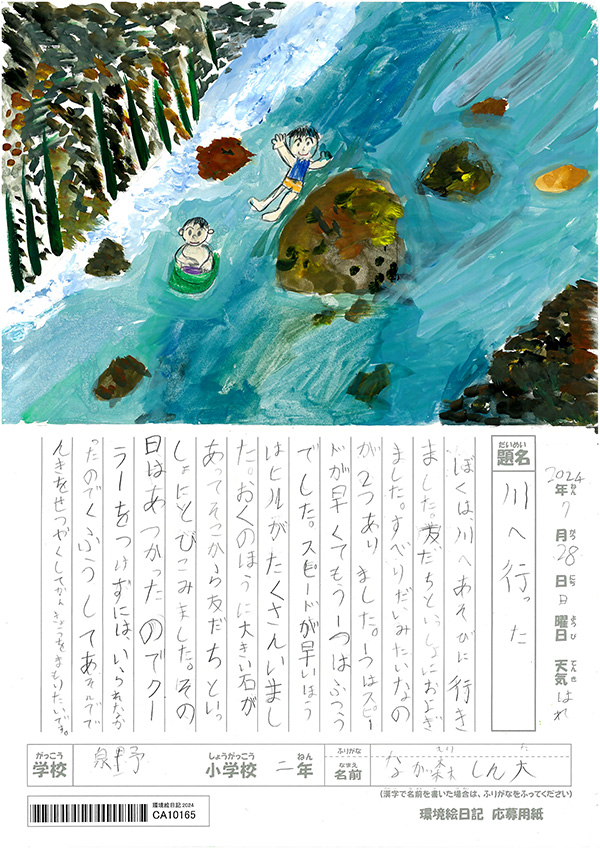 2024年7月28日日曜日 天気はれ
ねん がつ にち ようび てんき
だいめい
題名
川へ行った
ぼくは、川へあそびに行き
ました。友だちといっしょにおよぎ
ました。すべりだいみたいなの
が2つありました。1つはスピー
ドが早くてもう一つはふつう
でした。スピードが早いほう
はヒルがたくさんいまし
た。おくのほうに大きい石が
あってそこから友だちといっ
しょにとびこみました。その
日はあつかったのでクー
ラーをつけずには、いられなか
ったのでくふうしてあそんでで
んきをせつやくしてかんきょうをまもりたいです。
がっこう
学校
泉野
しょうがっこう
小学校
二
ねん
年
ふりがな
なまえ
名前
もり た
なか森しん太
(漢字で名前を書いた場合は、ふりがなをふってください)
環境絵日記2024
CA10165
環境絵日記 応募用紙